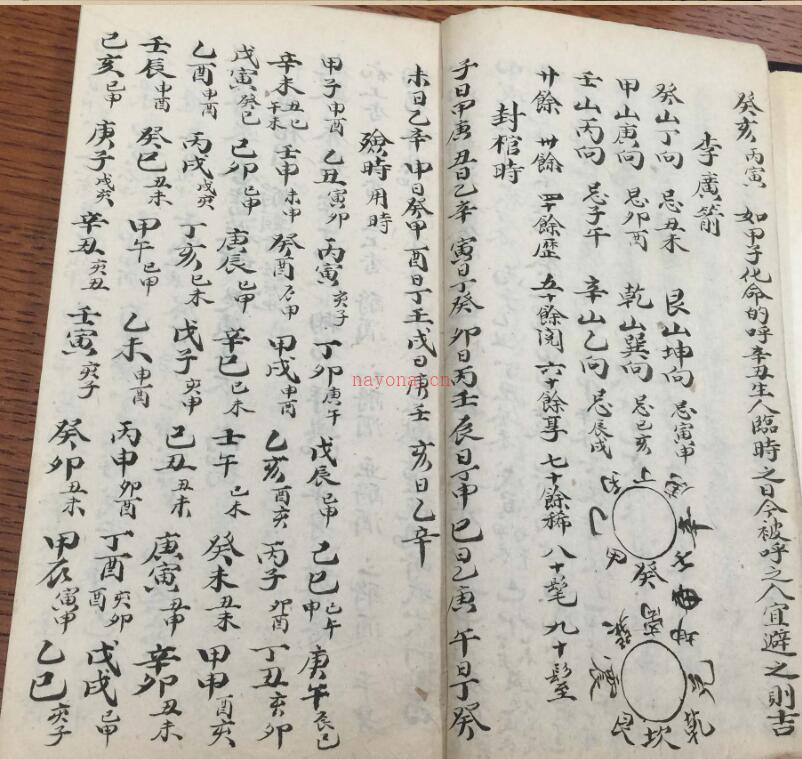 癸亥 丙寅 如甲子化命的呼辛丑生人臨時之日今被呼之人宜避之則吉
李廣箭
癸山丁向 忌丑未 艮山坤向 忌寅申
甲山庚向 忌卯酉 乾山巽向 忌巳亥
壬山丙向 忌子午 辛山乙向 忌辰戌
廿餘 卅餘 四十餘歷 五十餘閱 六十餘享 七十餘稀 八十髦 九十
癸
坎
艮
封棺時
子日甲庚 丑日乙辛 寅日丁癸 卯日丙壬 辰日丁申 巳日乙庚 午日丁癸
未日乙辛 申日癸甲 酉日丁壬 戌日庚壬 亥日乙辛
殮時用時
甲子申酉 乙丑寅卯 丙寅亥子 丁卯庚午 戊辰巳申 己巳巳午申 庚午辰巳
辛未丑巳午未 壬申未申 癸酉 甲戌申酉 乙亥酉亥 丙子卯酉 丁丑亥卯
戊寅癸巳 己卯巳申 庚辰巳申 辛巳巳未 壬午巳未 癸未丑未 甲申酉亥
乙酉申酉 丙戌戌亥 丁亥巳未 戊子亥申 己丑丑未 庚寅丑申 辛卯丑未
壬辰申酉 癸巳丑未 甲午巳申 乙未申酉 丙申卯酉 丁酉亥卯酉 戊戌巳申
己亥巳申 庚子戌亥 辛丑亥丑 壬寅亥子 癸卯丑未 甲辰寅申 乙巳亥子
nayona.cn